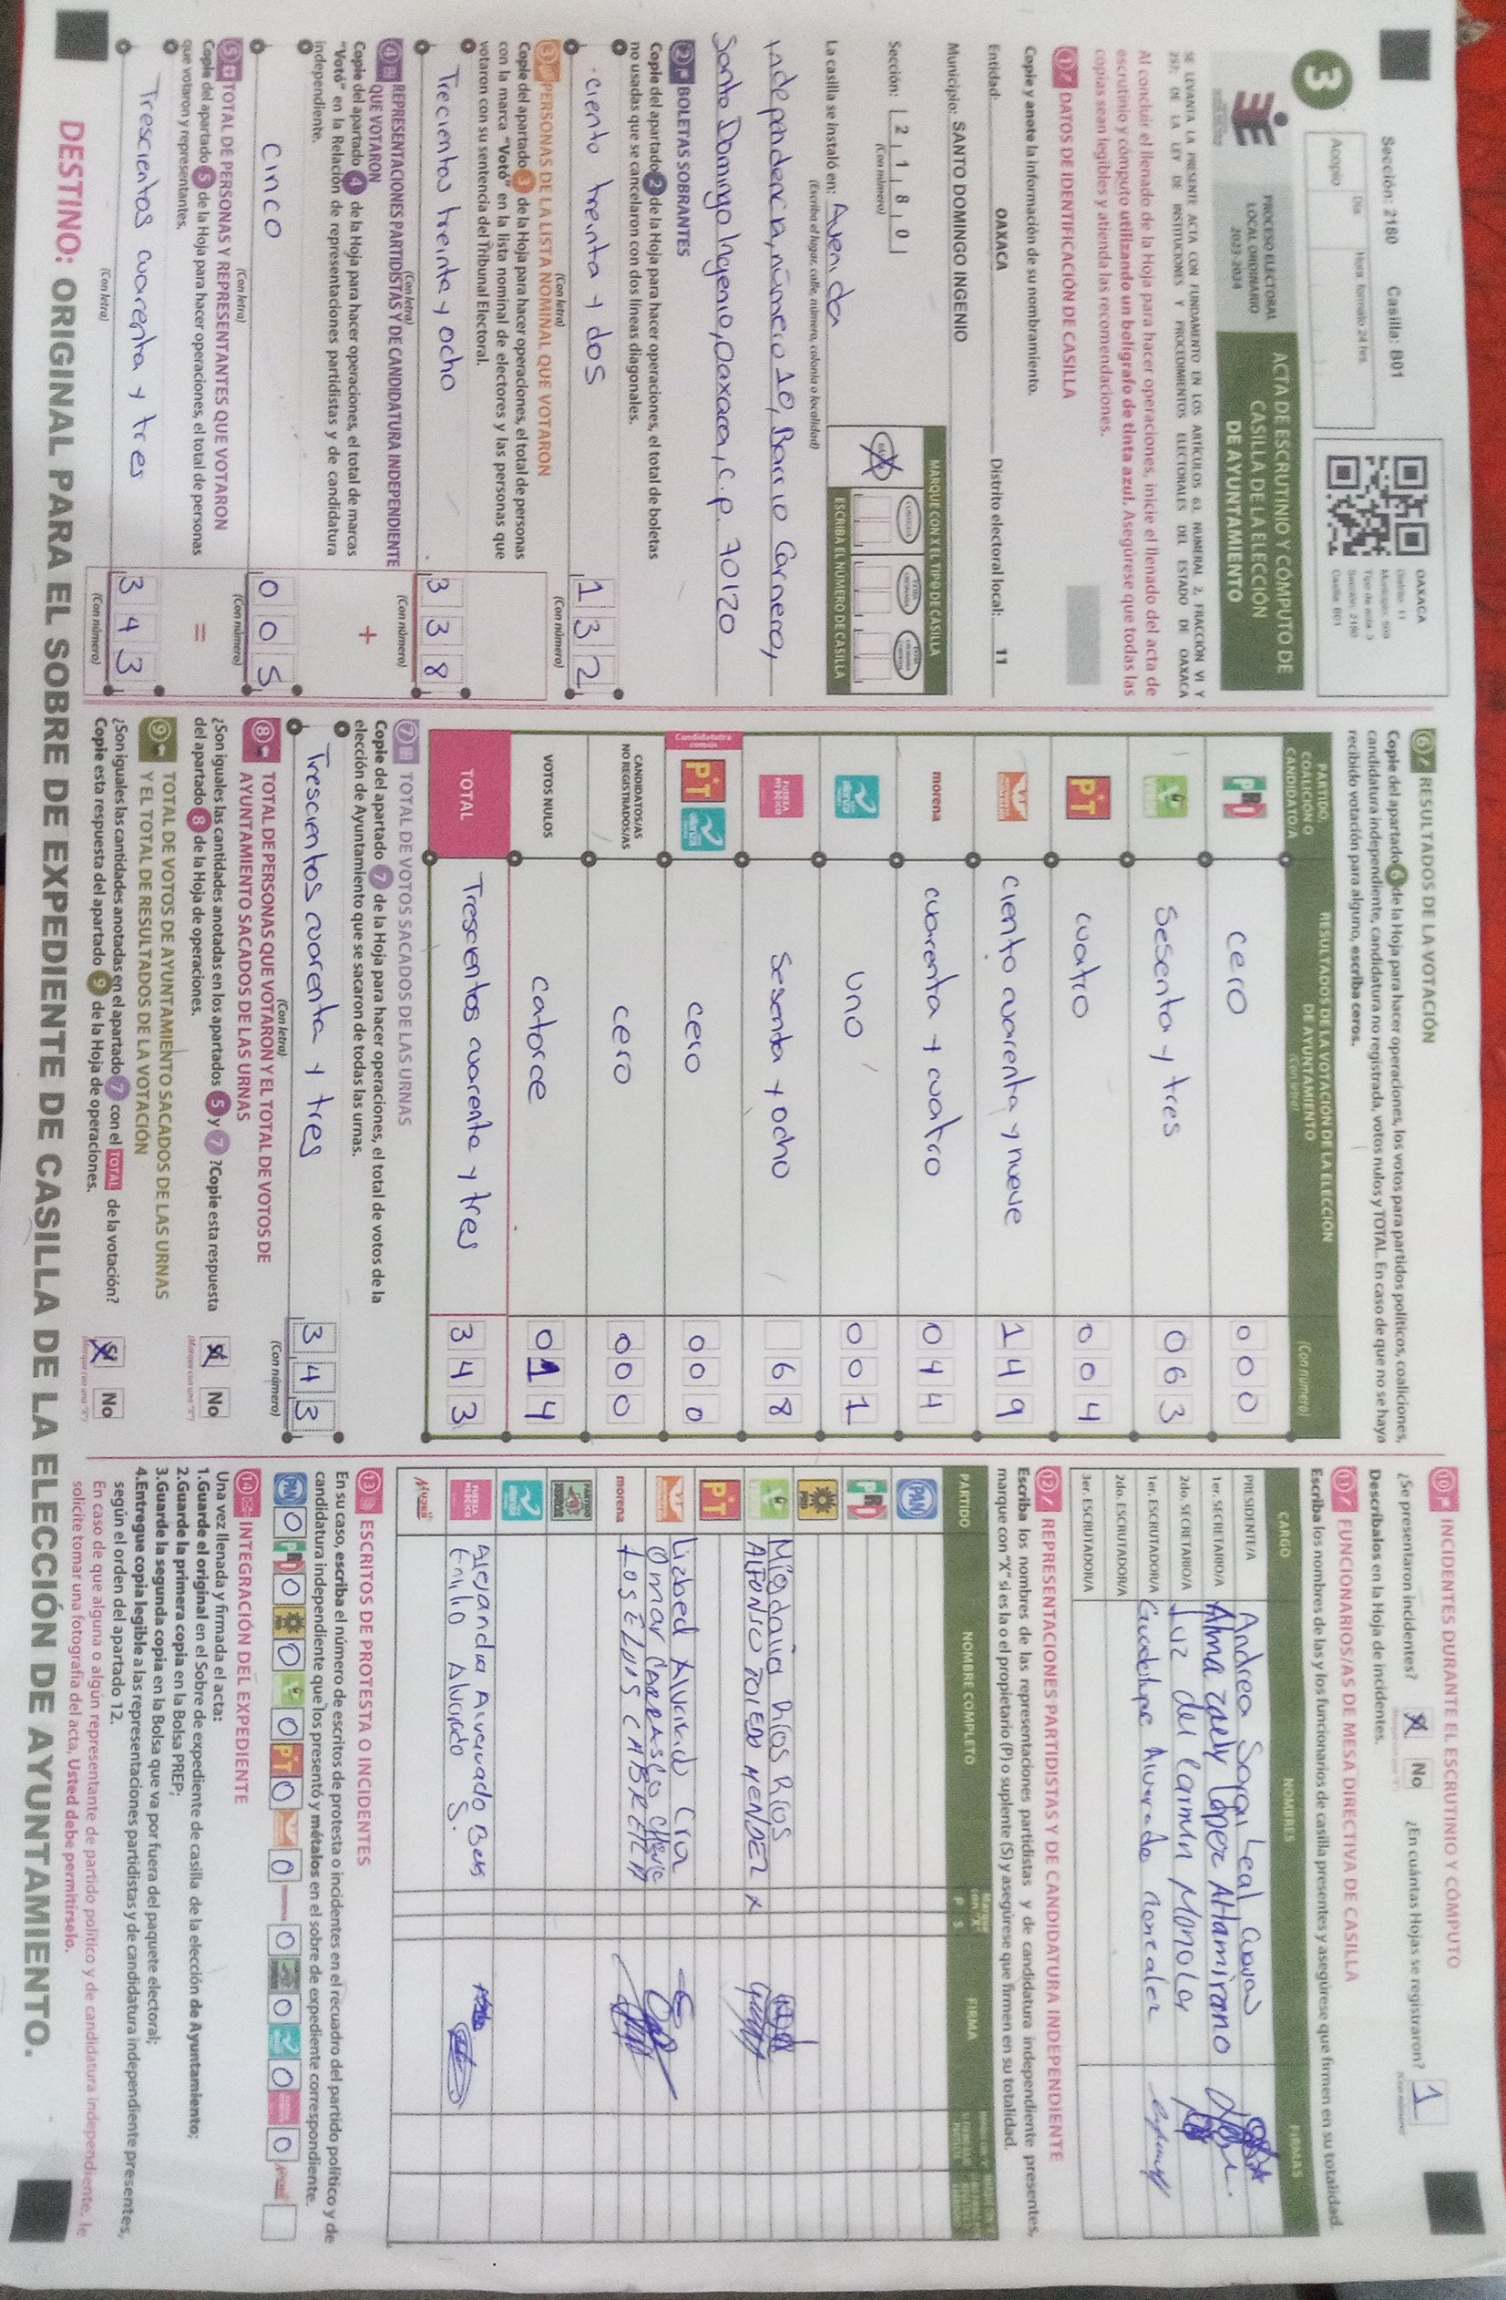 Sección: 2180 Casilla: B01
3
Día
Hora formato 24 hrs.
Acopio
OAXACA
Distrito: 11
Tipo de acta: 3
Sección: 2180
Casilla: B01
PROCESO ELECTORAL
LOCAL ORDINARIO
2023-2024
ACTA DE ESCRUTINIO Y CÓMPUTO DE
CASILLA DE LA ELECCIÓN
DE AYUNTAMIENTO
SE LEVANTA LA PRESENTE ACTA CON FUNDAMENTO EN LOS ARTÍCULOS 63, NUMERAL 2, FRACCIÓN VI Y
257; DE LA LEY DE INSTITUCIONES Y PROCEDIMIENTOS ELECTORALES DEL ESTADO DE OAXACA
Al concluir el llenado de la Hoja para hacer operaciones, inicie el llenado del acta de
escrutinio y cómputo utilizando un bolígrafo de tinta azul. Asegúrese que todas las
copias sean legibles y atienda las recomendaciones.
1 DATOS DE IDENTIFICACIÓN DE CASILLA
Copie y anote la información de su nombramiento.
Entidad: OAXACA Distrito electoral local: 11
Municipio: SANTO DOMINGO INGENIO
MARQUE CON X EL TIPO DE CASILLA
Sección: 2 1 8 0
(Con número)
ESCRIBA EL NÚMERO DE CASILLA
La casilla se instaló en: Avenida
(Escriba el lugar, calle, número, colonia o localidad)
Independencia, número 10, Barrio Carnero,
Santo Domingo Ingenio, Oaxaca, C.P. 70120
2 BOLETAS SOBRANTES
Copie del apartado 2 de la Hoja para hacer operaciones, el total de boletas
no usadas que se cancelaron con dos líneas diagonales.
ciento treinta y dos 1 3 2
(Con letra) (Con número)
3 PERSONAS DE LA LISTA NOMINAL QUE VOTARON
Copie del apartado 3 de la Hoja para hacer operaciones, el total de personas
con la marca "Votó" en la lista nominal de electores y las personas que
votaron con su sentencia del Tribunal Electoral.
Trecientos treinta y ocho 3 3 8
(Con letra) (Con número)
4 REPRESENTACIONES PARTIDISTAS Y DE CANDIDATURA INDEPENDIENTE
QUE VOTARON
+
Copie del apartado 4 de la Hoja para hacer operaciones, el total de marcas
"Votó" en la Relación de representaciones partidistas y de candidatura
independiente.
Cinco 0 0 5
(Con letra) (Con número)
5 TOTAL DE PERSONAS Y REPRESENTANTES QUE VOTARON
=
Copie del apartado 5 de la Hoja para hacer operaciones, el total de personas
que votaron y representantes.
Trescientos cuarenta y tres 3 4 3
(Con letra) (Con número)
6 RESULTADOS DE LA VOTACIÓN
Copie del apartado 6 de la Hoja para hacer operaciones, los votos para partidos políticos, coaliciones,
candidatura independiente, candidatura no registrada, votos nulos y TOTAL. En caso de que no se haya
recibido votación para alguno, escriba ceros.
PARTIDO,
COALICIÓN O
CANDIDATO/A
RESULTADOS DE LA VOTACIÓN DE LA ELECCIÓN
DE AYUNTAMIENTO
(Con letra) (Con número)
PRI cero 0 0 0
Sesenta y tres 0 6 3
PT cuatro 0 0 4
ciento cuarenta y nueve 1 4 9
morena cuarenta y cuatro 0 4 4
uno 0 0 1
FUERZA MÉXICO Sesenta y ocho 6 8
Candidatura común PT cero 0 0 0
CANDIDATOS/AS
NO REGISTRADOS/AS cero 0 0 0
VOTOS NULOS catorce 0 1 4
TOTAL Trescientos cuarenta y tres 3 4 3
7 TOTAL DE VOTOS SACADOS DE LAS URNAS
Copie del apartado 7 de la Hoja para hacer operaciones, el total de votos de la
elección de Ayuntamiento que se sacaron de todas las urnas.
Trescientos cuarenta y tres 3 4 3
(Con letra) (Con número)
8 TOTAL DE PERSONAS QUE VOTARON Y EL TOTAL DE VOTOS DE
AYUNTAMIENTO SACADOS DE LAS URNAS
¿Son iguales las cantidades anotadas en los apartados 5 y 7 ? Copie esta respuesta
del apartado 8 de la Hoja de operaciones.
Sí No
9 TOTAL DE VOTOS DE AYUNTAMIENTO SACADOS DE LAS URNAS
Y EL TOTAL DE RESULTADOS DE LA VOTACIÓN
¿Son iguales las cantidades anotadas en el apartado 7 con el TOTAL de la votación?
Copie esta respuesta del apartado 9 de la Hoja de operaciones.
Sí No
10 INCIDENTES DURANTE EL ESCRUTINIO Y CÓMPUTO
¿Se presentaron incidentes? Sí No ¿En cuántas Hojas se registraron? 1
Descríbalos en la Hoja de incidentes.
11 FUNCIONARIOS/AS DE MESA DIRECTIVA DE CASILLA
Escriba los nombres de las y los funcionarios de casilla presentes y asegúrese que firmen en su totalidad.
CARGO NOMBRES FIRMAS
PRESIDENTE/A Andrea Sarai Leal
1er. SECRETARIO/A Alma Zaely López Altamirano
2do. SECRETARIO/A Luz del Carmin
1er. ESCRUTADOR/A Guadalupe Alvarado Gonzalez
2do. ESCRUTADOR/A
3er. ESCRUTADOR/A
12 REPRESENTACIONES PARTIDISTAS Y DE CANDIDATURA INDEPENDIENTE
Escriba los nombres de las representaciones partidistas y de candidatura independiente presentes,
marque con "X" si es la o el propietario (P) o suplente (S) y asegúrese que firmen en su totalidad.
PARTIDO NOMBRE COMPLETO P S FIRMA
PAN
PRI
PRD
Migdalia Ríos Ríos
ALFONSO TOLEDO MENDEZ x
PT
Lizbed Alvarado Cra
Omar CARRASCO
morena JOSE LUIS CABRERA
FUERZA MÉXICO Alejandra Alvarado
Emilio Alvarado S.
13 ESCRITOS DE PROTESTA O INCIDENTES
En su caso, escriba el número de escritos de protesta o incidentes en el recuadro del partido político y de
candidatura independiente que los presentó y métalos en el sobre de expediente correspondiente.
PAN 0 PRI 0 0 0 PT 0 0 0 0 0 0
14 INTEGRACIÓN DEL EXPEDIENTE
Una vez llenada y firmada el acta:
1.Guarde el original en el Sobre de expediente de casilla de la elección de Ayuntamiento;
2.Guarde la primera copia en la Bolsa PREP;
3.Guarde la segunda copia en la Bolsa que va por fuera del paquete electoral;
4.Entregue copia legible a las representaciones partidistas y de candidatura independiente presentes,
según el orden del apartado 12.
En caso de que alguna o algún representante de partido político y de candidatura independiente, le
solicite tomar una fotografía del acta, Usted debe permitírselo.
DESTINO: ORIGINAL PARA EL SOBRE DE EXPEDIENTE DE CASILLA DE LA ELECCIÓN DE AYUNTAMIENTO.